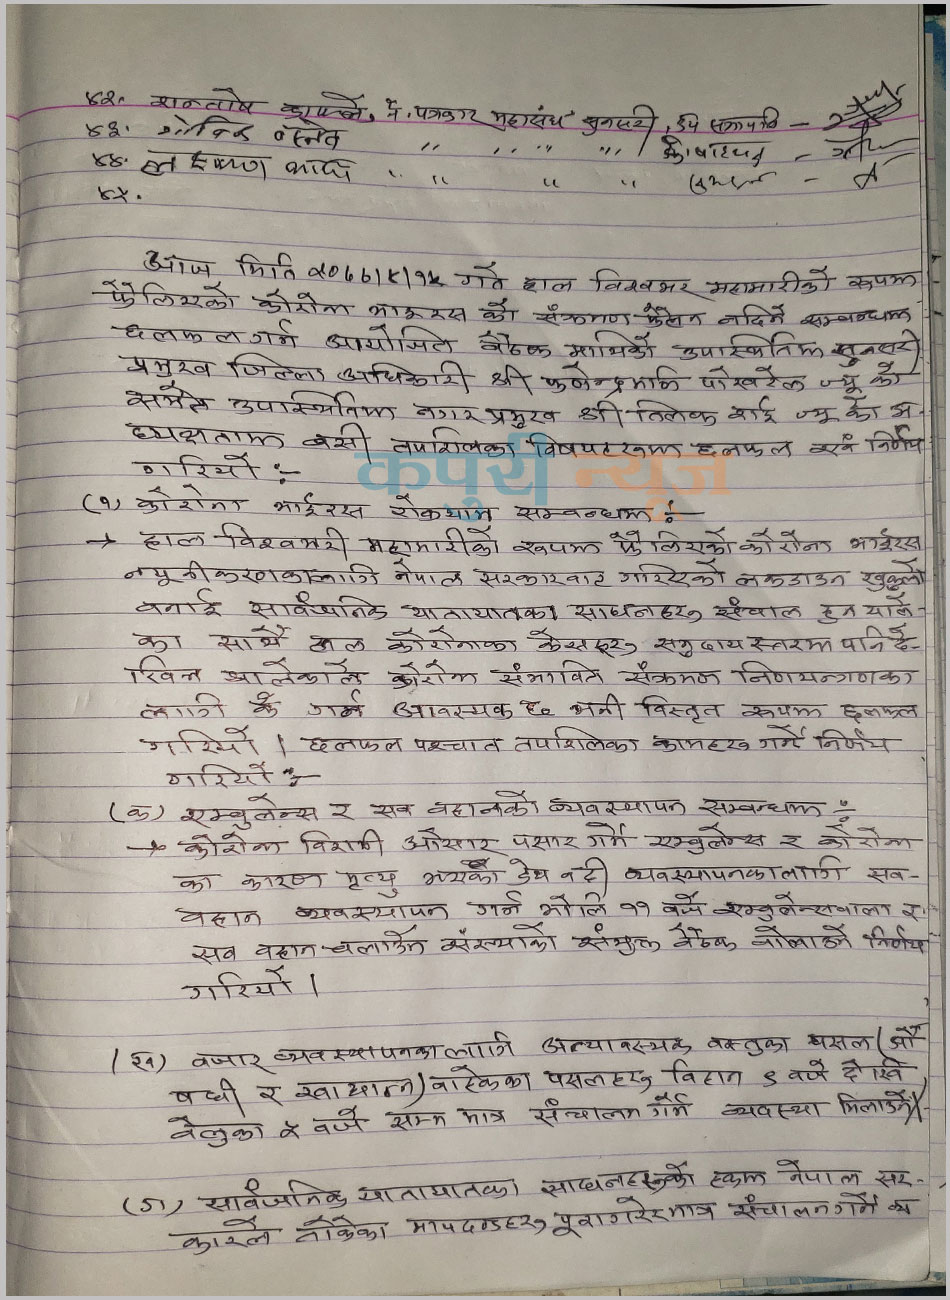 ४२. सन्तोष काफ्ले, ने. पत्रकार महासंघ सुनसरी, उप सभापति –
४३. गोविन्द बस्नेत " " " " कोषाध्यक्ष –
४४. " " " " –
४५.
आज मिति २०७७।४।१५ गते हाल विश्वभर महामारीको रुपमा
फैलिएको कोरोना भाइरस को संक्रमण फैलन नदिने सम्बन्धमा
छलफल गर्न आयोजित बैठक माथिको उपस्थितिमा सुनसरी
प्रमुख जिल्ला अधिकारी श्री फणेन्द्रमणि पोखरेल ज्यू को
समेत उपास्थितिमा नगर प्रमुख श्री तिलक राई ज्यू को अ-
ध्यक्षतामा बसी तपशिलका विषयहरुमा छलफल एवं निर्णय
गरियो :-
कपुरी न्यूज
(१) कोरोना भाईरस रोकथाम सम्बन्धमा :-
→ हाल विश्वभरी महामारीको रुपमा फैलिएको कोरोना भाईरस
न्यूनीकरणकालागि नेपाल सरकारबाट गरिएको लकडाउन खुकुलो
बनाई सार्वजनिक यातायातका साधनहरु संचाल हुन थाले-
का साथै हाल कोरोनाका केसहरु समुदाय स्तरमा पनि दे-
खिन थालेकाले कोरोना संभावित संक्रमण नियन्त्रणका
लागि के गर्न आवस्यक छ भनी विस्तृत रुपमा छलफल
गरियो । छलफल पश्चात तपशिलका कामहरु गर्ने निर्णय
गरियो :-
(क) एम्बुलेन्स र सव वहानको व्यवस्थापन सम्बन्धमा :-
→ कोरोना विरामी ओसार पसार गर्ने एम्बुलेन्स र कोरोना
का कारण मृत्यु भएको डेथ बडी व्यवस्थापनकालागि सव-
वहान व्यवस्थापन गर्न भोलि ११ बजे एम्बुलेन्सवाला र
सव वहान चलाउने संस्थाको संयुक्त बैठक बोलाउने निर्णय
गरियो ।
(ख) बजार व्यवस्थापनकालागि अत्यावस्यक वस्तुका पसल (औ
षधी र खाद्यान्न) बाहेकका पसलहरु विहान ९ बजे देखि
बेलुका ५ बजे सम्म मात्र संचालन गर्ने व्यवस्था मिलाउने ।
(ग) सार्वजनिक यातायातका साधनहरुको हकमा नेपाल सर-
कारले तोकेका मापदण्डहरु पूरा गरेर मात्र संचालन गर्ने व्य